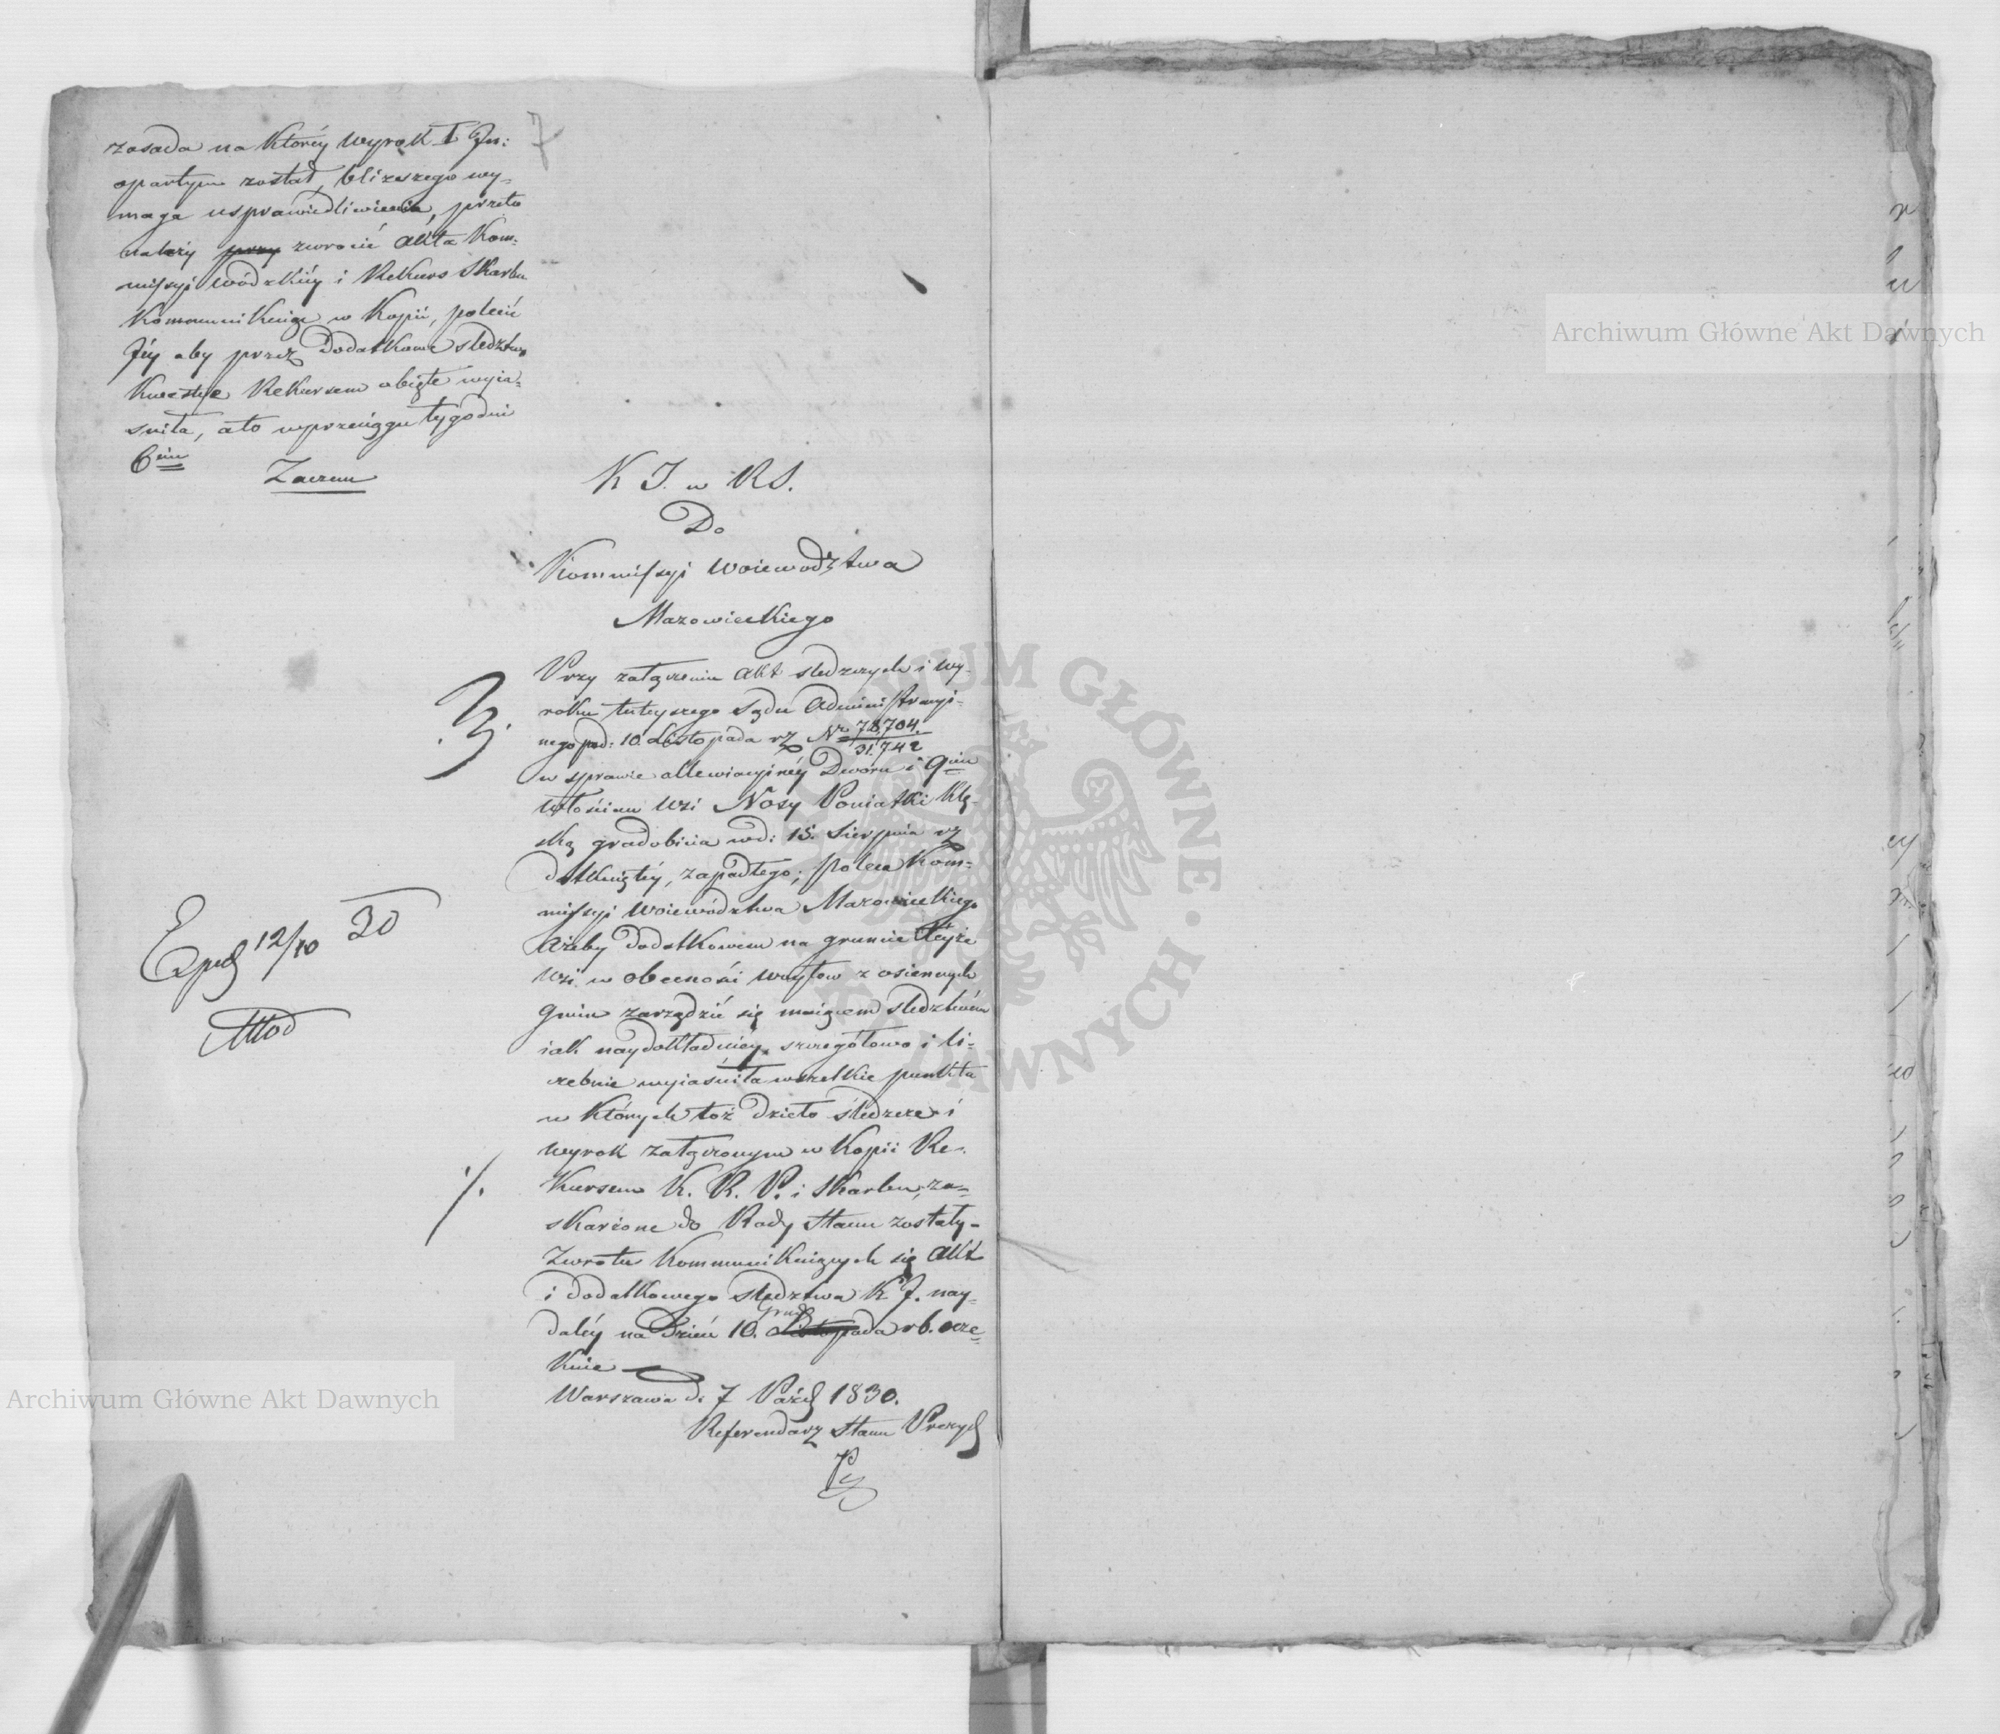 zasada na któréy wyrok I Jn:
7
opartym został, bliższego wy-
maga usprawiedliwienia, przeto
należy przy zwrocić akta Kom-
missyi wódzkiéy i Rekurs Skarbu
Kommunikuiąc w Kopii, polecić
Jéy aby przez dodatkowe sledztwo
Kwestye Rekursem obięte wyia-
sniła, a to w przeciągu tygodni
6ciu
Zaczem
K J. w RS.
Do
Kommissyi Woiewodztwa
Mazowieckiego
Przy załączeniu akt sledczych i wy-
roku tuteyszego Sądu Administracyi-
nego pod: 10. Listopada rz Nr 78,704.
31,742
w sprawie allewiacyinéy Dworu i 9ciu
włościan wsi Nosy Poniatki klę-
ską gradobicia w d: 15. Sierpnia rz
dotkniętéy, zapadłego; poleca Kom-
missyi Woiewództwa Mazowieckiego
ażeby dodatkowem na gruncie teyże
wsi w obecności wóytow z osciennych
gmin zarządzić się maiącem sledztwem
iak naydokładniéy, szczegółowo i li-
czebnie wyiaśniła wszelkie punkta
w których toż dzieło śledcze i
wyrok załączonym w Kopii Re-
kursem K. R. P. i Skarbu, za-
skarżone do Rady Stanu zostały-
Zwrotu Kommunikuiących się akt
i dodatkowego sledztwa K J. nay-
Grud
daléy na dzień 10. Listopada rb. ocze-
kuie
Warszawa d. 7 Paźd 1830.
Referendarz Stanu Prezyd
Exped 12/10 30
Archiwum Główne Akt Dawnych
Archiwum Główne Akt Dawnych